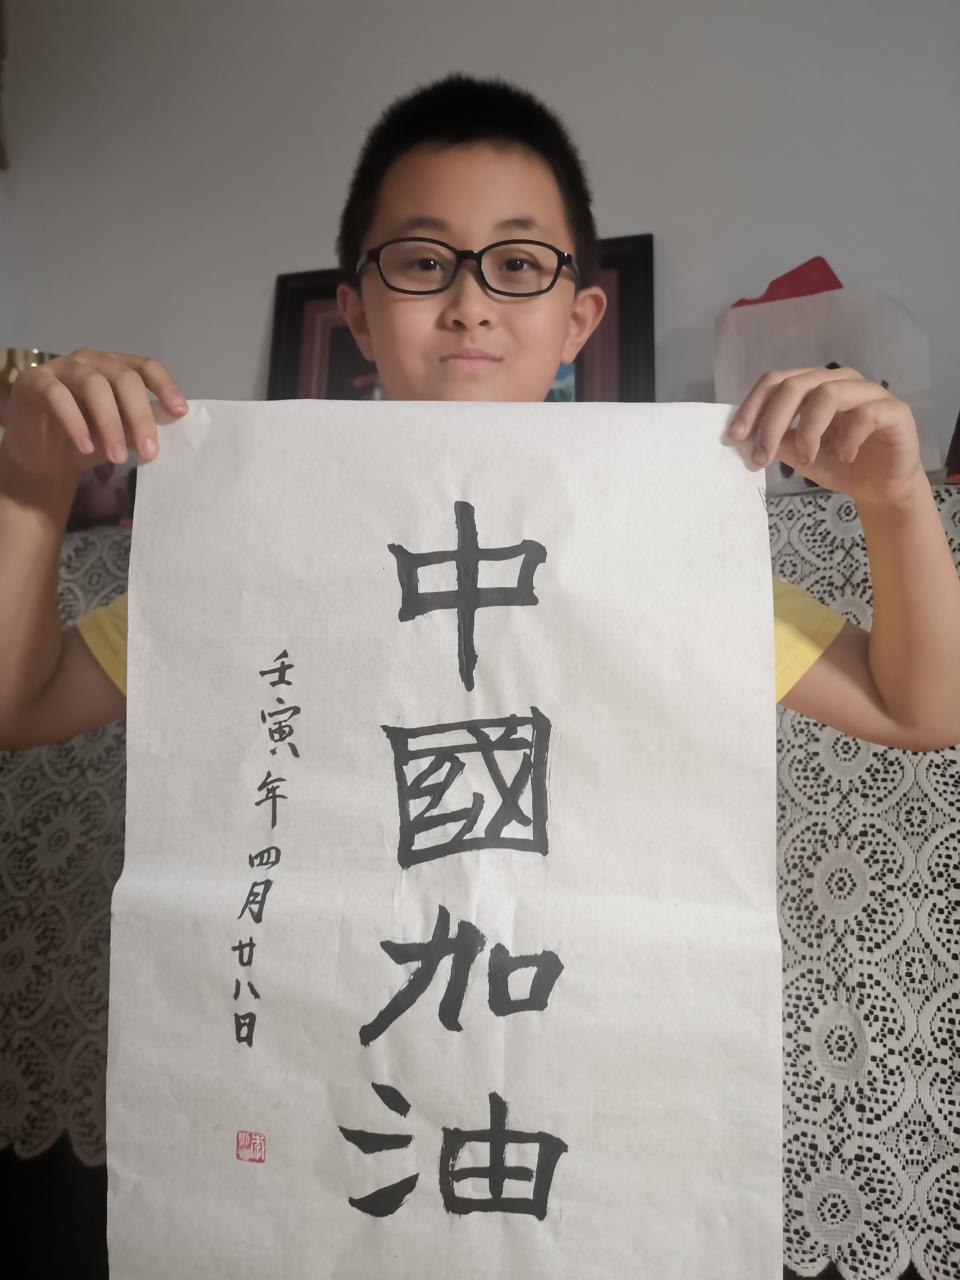 中國加油
壬寅年四月廿八日